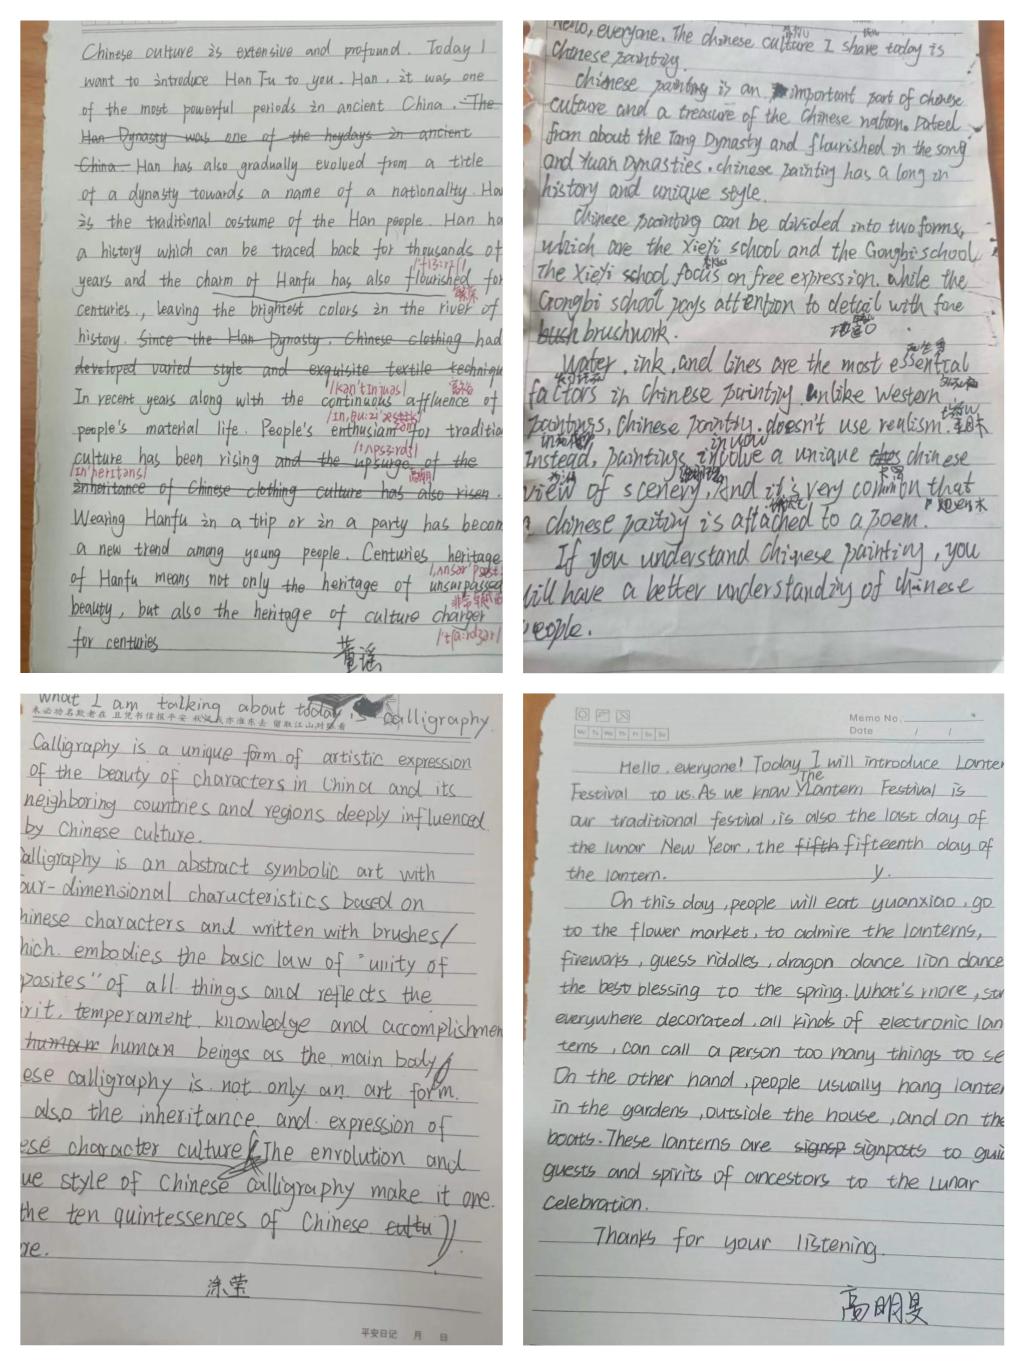 Chinese culture is extensive and profound. Today I
want to introduce Han Fu to you. Han, it was one
of the most powerful periods in ancient China. The
Han Dynasty was one of the heydays in ancient
China. Han has also gradually evolved from a title
of a dynasty towards a name of a nationality. Ha
is the traditional costume of the Han people. Han ha
a history which can be traced back for thousands of
years and the charm of Hanfu has also flourished for
centuries, leaving the brightest colors in the river of
history. Since the Han Dynasty, Chinese clothing had
developed varied style and exquisite textile techniqu
In recent years along with the continuous affluence of
people's material life. People's enthusiam for traditio
culture has been rising and the upsurge of the
inheritance of Chinese clothing culture has also risen.
Wearing Hanfu in a trip or in a party has becom
a new trend among young people. Centuries heritage
of Hanfu means not only the heritage of unsurpassed
beauty, but also the heritage of culture charger
for centuries
董谣
Hello, everyone. The chinese culture I share today is
Chinese painting.
Chinese painting is an important part of chinese
culture and a treasure of the Chinese nation. Dated
from about the Tang Dynasty and flourished in the song
and Yuan Dynasties. chinese painting has a long in
history and unique style.
Chinese painting can be divided into two forms,
which are the XieYi school and the Gongbi school.
The XieYi school focus on free expression. while the
Gongbi school pays attention to detail with fine
bush brushwork.
Water, ink, and lines are the most essential
factors in Chinese painting. unlike Western
paintings, Chinese painting doesn't use realism.
Instead, paintings involve a unique chinese
view of scenery. And it's very common that
a chinese paiting is attached to a poem.
If you understand Chinese painting, you
will have a better understanding of chinese
people.
what I am talking about today is calligraphy.
Calligraphy is a unique form of artistic expression
of the beauty of characters in China and its
neighboring countries and regions deeply influenced
by Chinese culture.
alligraphy is an abstract symbolic art with
our-dimensional characteristics based on
hinese characters and written with brushes/
hich embodies the basic law of "unity of
posites" of all things and reflects the
irit, temperament, knowledge and accomplishmen
human human beings as the main body
ese calligraphy is not only an art form.
also the inheritance and expression of
ese character culture. The envolution and
ue style of Chinese calligraphy make it one
the ten quintessences of Chinese cultu
re.
涂荣
平安日记 月 日
Memo No.
Date / /
Mo Tu We Th Fr Sa Su
Hello, everyone! Today I will introduce Lanter
Festival to us. As we know The Lantern Festival is
our traditional festival, is also the last day of
the lunar New Year, the fifth fifteenth day of
the lantern. y.
On this day, people will eat yuanxiao, go
to the flower market, to admire the lanterns,
fireworks, guess riddles, dragon dance lion dance
the best blessing to the spring. What's more, str
everywhere decorated, all kinds of electronic lan
terns, can call a person too many things to se
On the other hand, people usually hang lanter
in the gardens, outside the house, and on the
boats. These lanterns are signsp signposts to gui
guests and spirits of ancestors to the Lunar
celebration.
Thanks for your listening.
高明旻